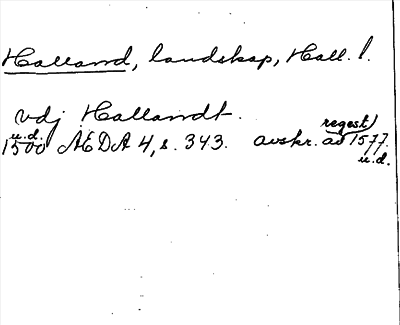 Halland, landskap, Hall. l.
vdj Hallandt.
u.d. regest)
1500 ÆDA 4, s. 343. avskr. av 1577.
u.d.